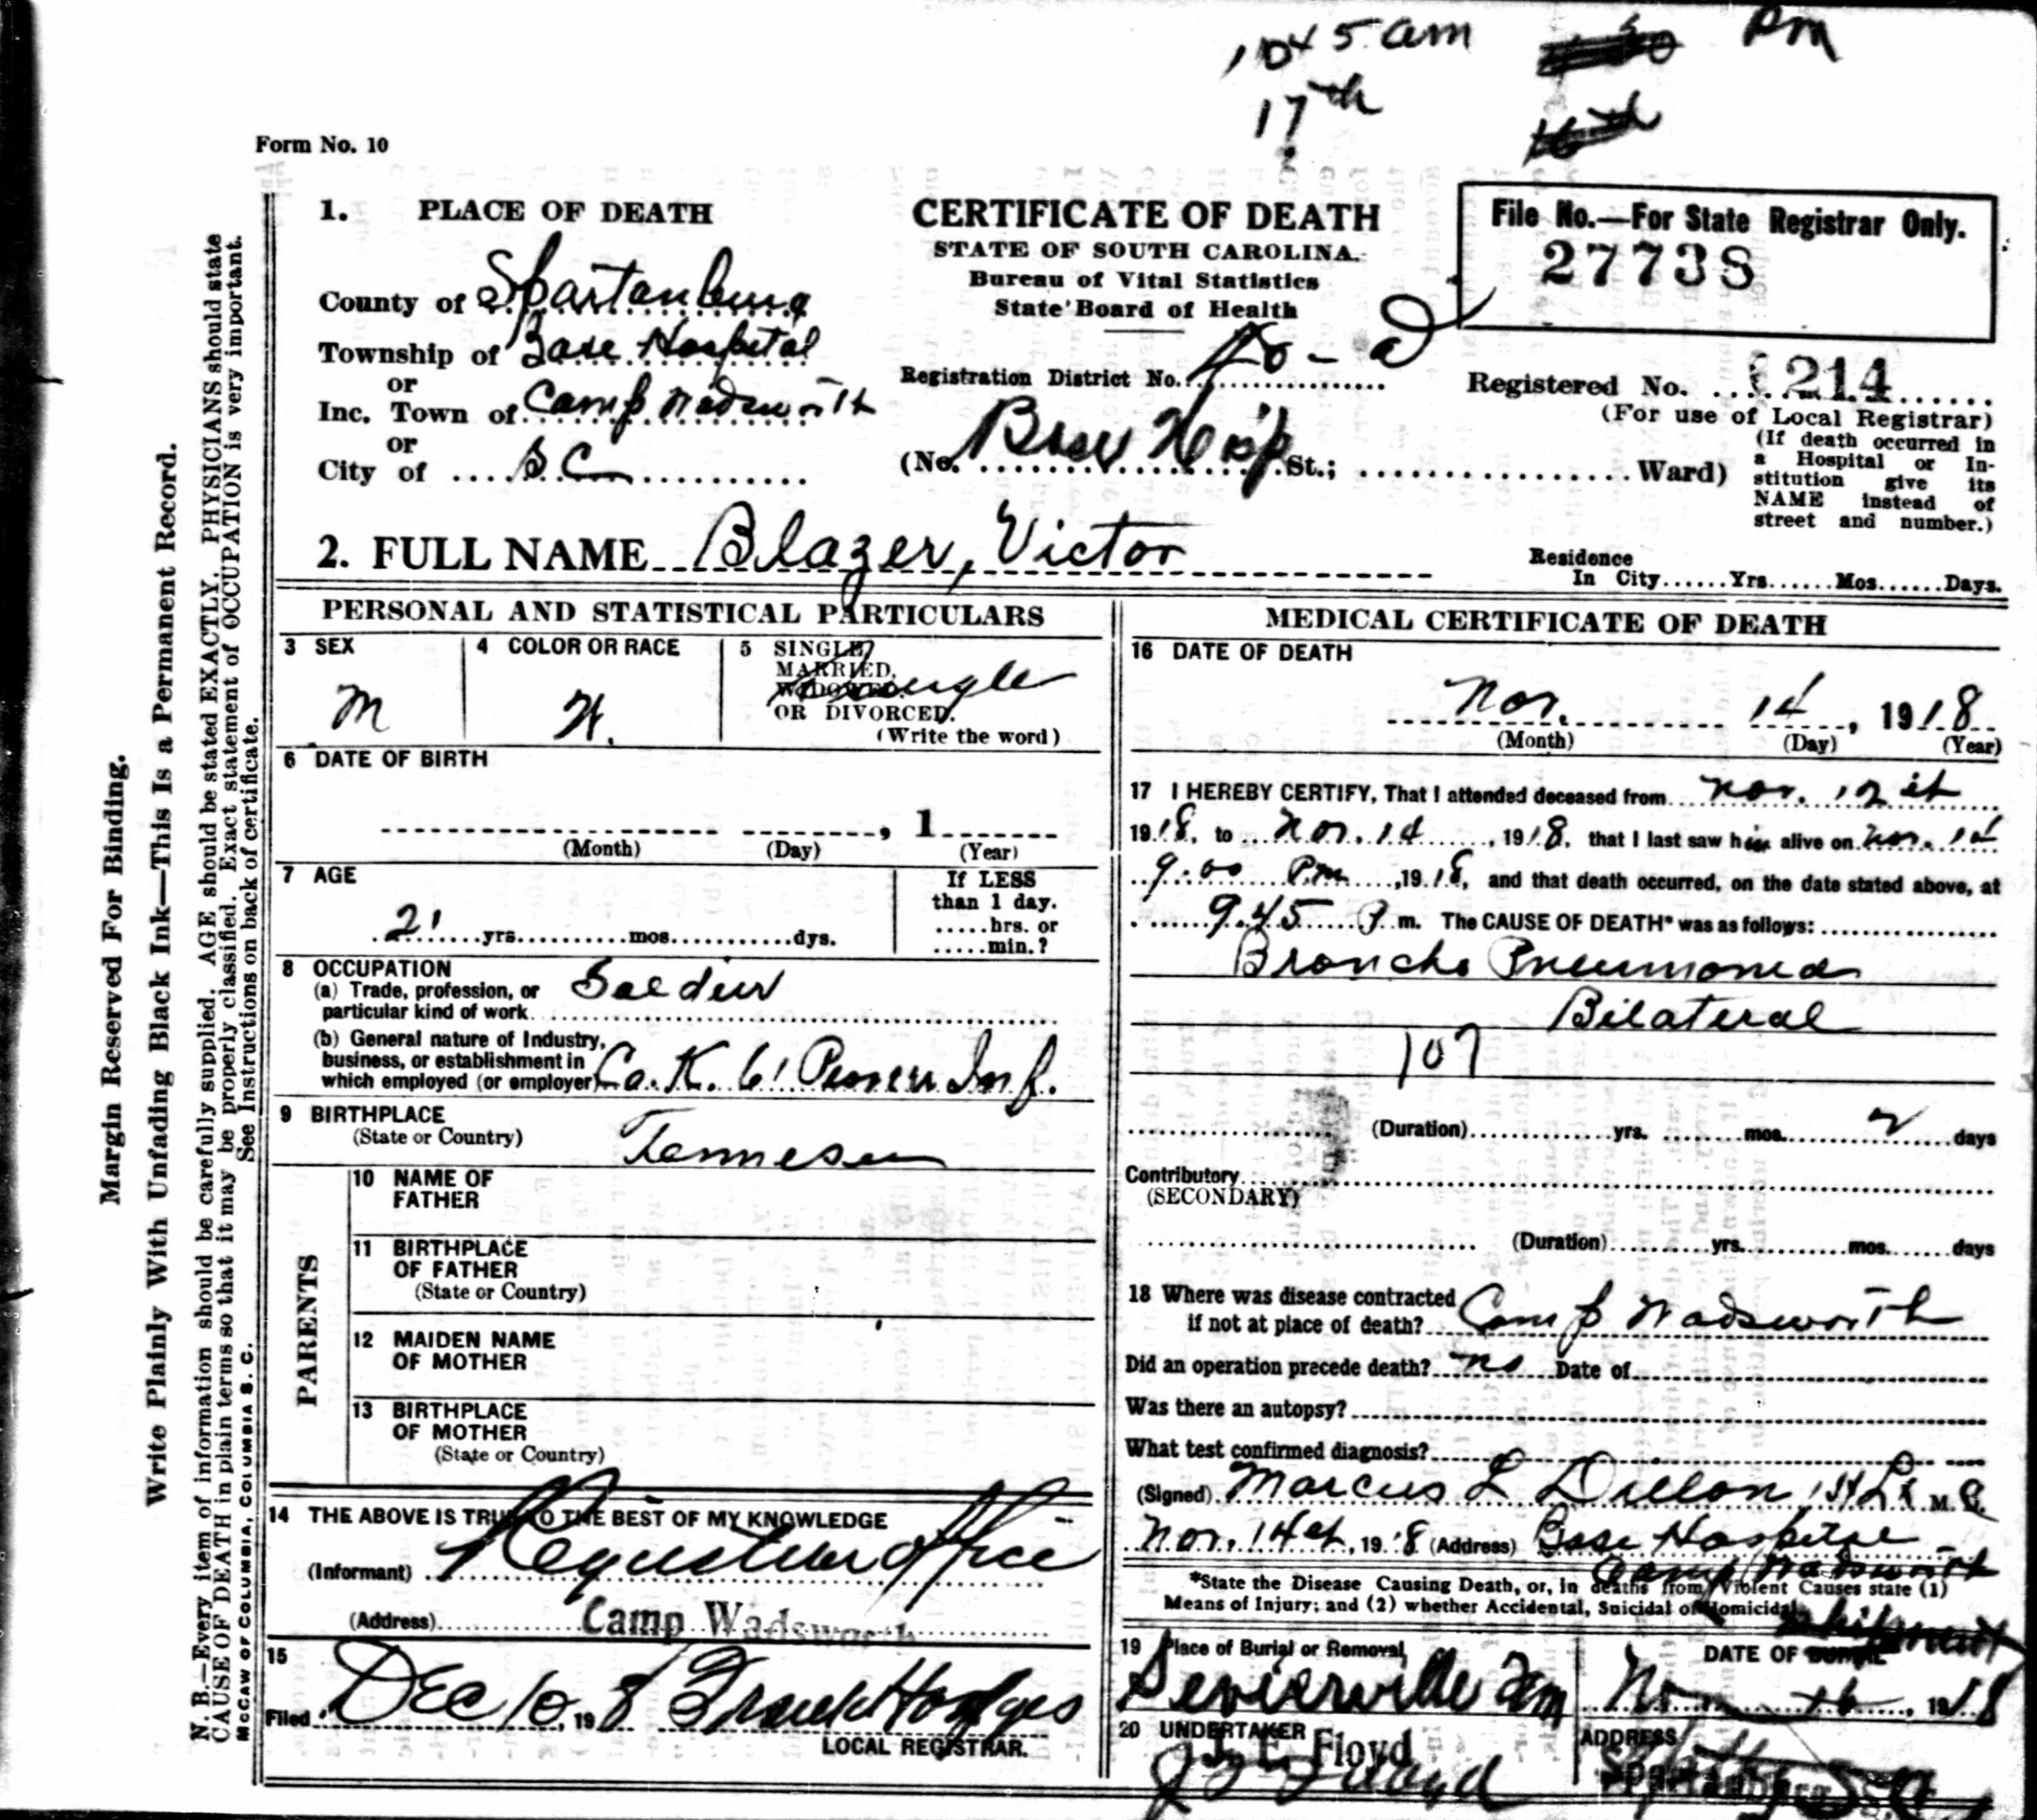 1045 am Pm
17th
Form No. 10
1. PLACE OF DEATH
County of Spartanburg
Township of Base Hospital
or
Inc. Town of Camp Wadsworth
or
City of S C
CERTIFICATE OF DEATH
STATE OF SOUTH CAROLINA.
Bureau of Vital Statistics
State Board of Health
Registration District No. 40-a
(No. Base Hosp St.; Ward)
File No.—For State Registrar Only.
27738
Registered No. 214
(For use of Local Registrar)
(If death occurred in
a Hospital or In-
stitution give its
NAME instead of
street and number.)
2. FULL NAME Blazer, Victor
Residence
In City......Yrs......Mos......Days.
PERSONAL AND STATISTICAL PARTICULARS
3 SEX
M
4 COLOR OR RACE
W.
5 SINGLE,
MARRIED,
WIDOWED,
OR DIVORCED.
(Write the word)
Single
6 DATE OF BIRTH
, 1
(Month) (Day) (Year)
7 AGE
21 yrs. mos. dys.
If LESS
than 1 day.
.....hrs. or
.....min.?
8 OCCUPATION
(a) Trade, profession, or
particular kind of work
Soldier
(b) General nature of Industry,
business, or establishment in
which employed (or employer) Co. K. 61 Pioneer Inf.
9 BIRTHPLACE
(State or Country)
Tennessee
PARENTS
10 NAME OF
FATHER
11 BIRTHPLACE
OF FATHER
(State or Country)
12 MAIDEN NAME
OF MOTHER
13 BIRTHPLACE
OF MOTHER
(State or Country)
14 THE ABOVE IS TRUE TO THE BEST OF MY KNOWLEDGE
(Informant) Registrar office
(Address) Camp Wadsworth
15
Filed Dec 10, 1918 Frank Hodges
LOCAL REGISTRAR.
MEDICAL CERTIFICATE OF DEATH
16 DATE OF DEATH
Nov. 14, 1918
(Month) (Day) (Year)
17 I HEREBY CERTIFY, That I attended deceased from Nov. 12th
1918, to Nov. 14, 1918, that I last saw him alive on Nov. 14
9:00 Pm, 1918, and that death occurred, on the date stated above, at
9.45 P m. The CAUSE OF DEATH* was as follows:
Broncho Pneumonia
Bilateral
107
(Duration) yrs. mos. 2 days
Contributory
(SECONDARY)
(Duration) yrs. mos. days
18 Where was disease contracted
if not at place of death? Camp Wadsworth
Did an operation precede death? no Date of
Was there an autopsy?
What test confirmed diagnosis?
(Signed) Marcus L Dillon 1st Lt M. C.
Nov. 14th, 1918 (Address) Base Hospital
Camp Wadsworth
*State the Disease Causing Death, or, in deaths from Violent Causes state (1)
Means of Injury; and (2) whether Accidental, Suicidal or Homicidal.
19 Place of Burial or Removal
Sevierville Tenn
DATE OF BURIAL
shipment
Nov 16, 1918
20 UNDERTAKER
J. F. Floyd
J F Floyd
ADDRESS
Spartanburg S C
Margin Reserved For Binding.
Write Plainly With Unfading Black Ink—This Is a Permanent Record.
N. B.—Every item of information should be carefully supplied. AGE should be stated EXACTLY. PHYSICIANS should state
CAUSE OF DEATH in plain terms so that it may be properly classified. Exact statement of OCCUPATION is very important.
See Instructions on back of certificate.
McCAW OF COLUMBIA, COLUMBIA S. C.